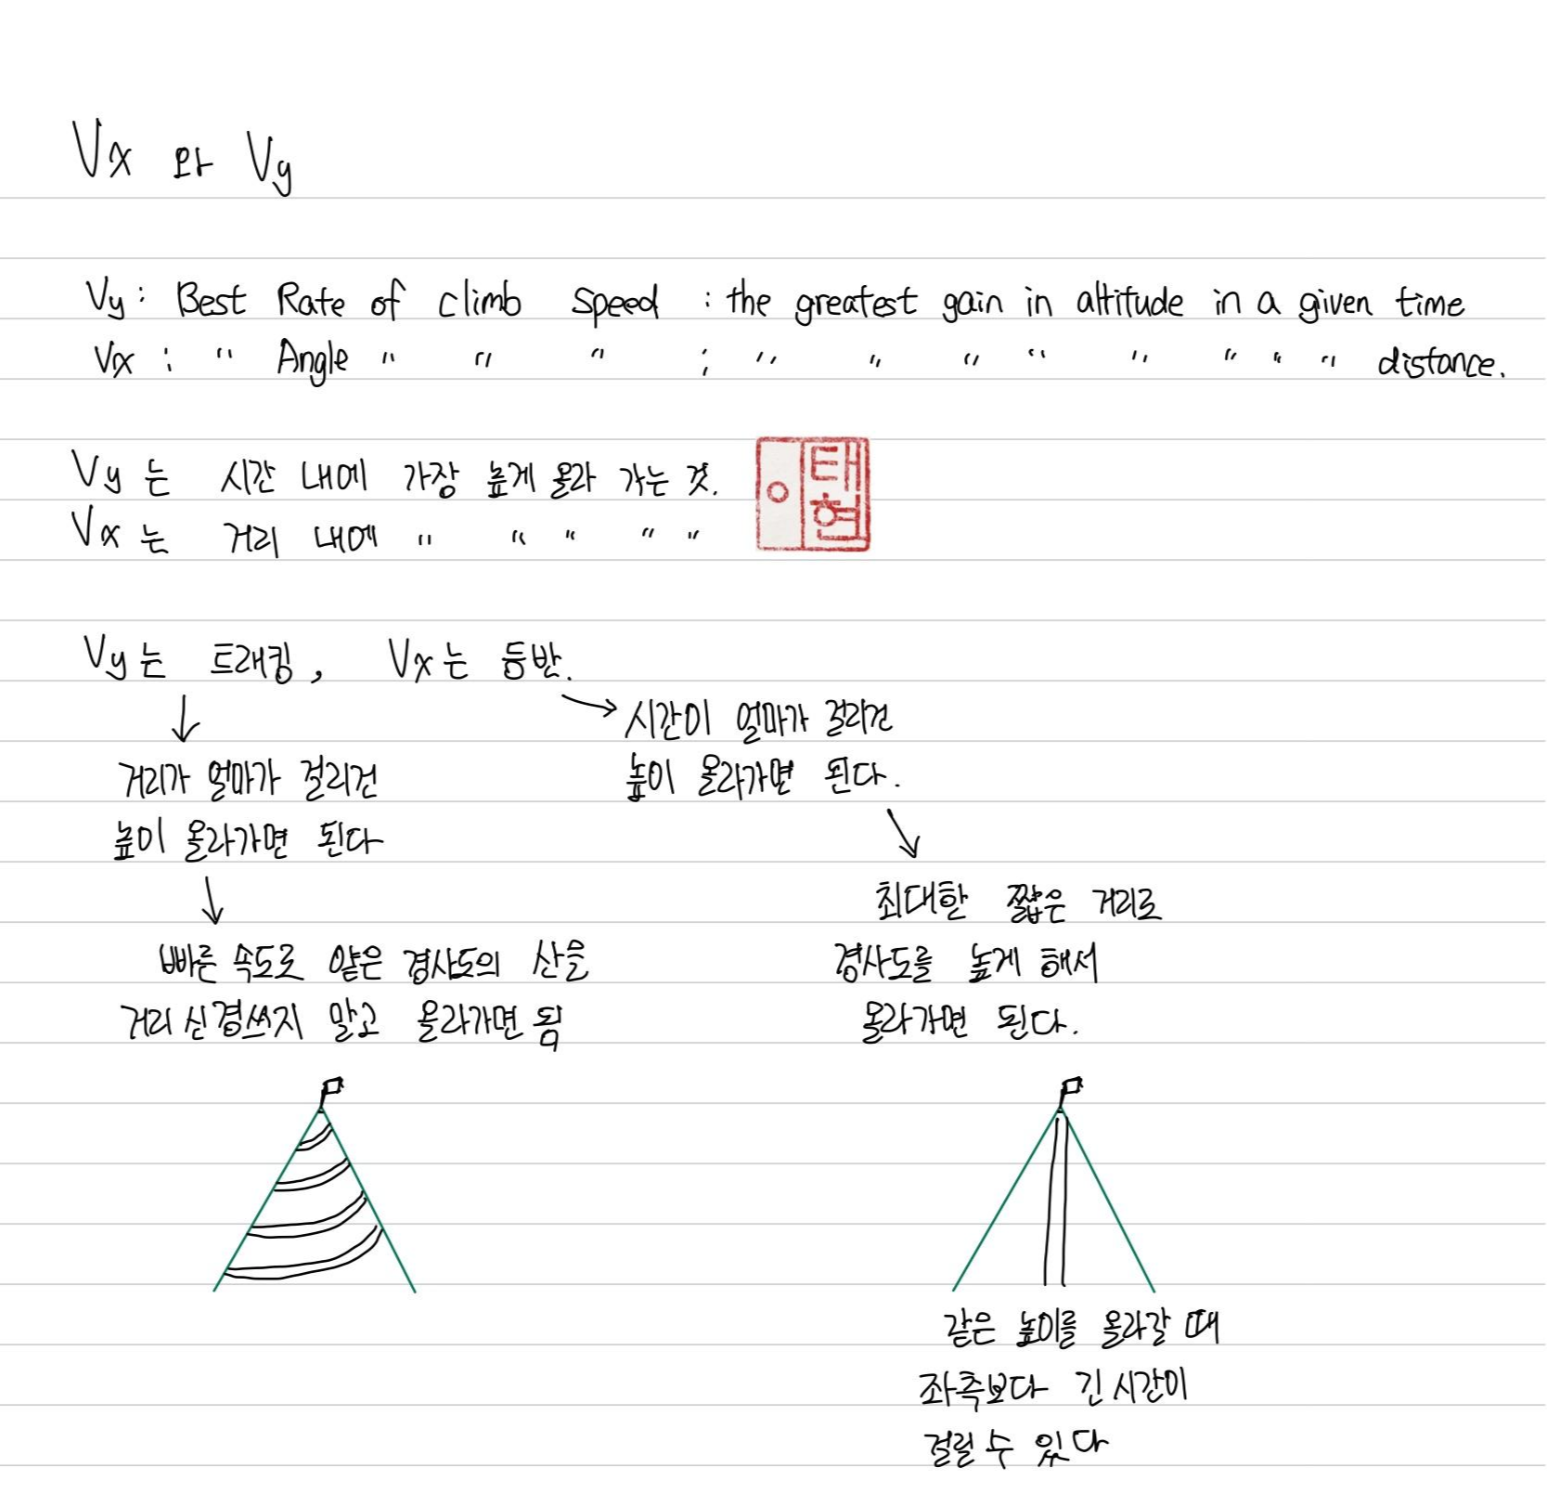 Vx 와 Vy
Vy : Best Rate of climb speed : the greatest gain in altitude in a given time
Vx : " Angle " " " ; " " " " " " " " distance.
Vy 는 시간 내에 가장 높게 올라 가는 것.
Vx 는 거리 내에 " " " " "
태
현
Vy는 트래킹, Vx는 등반.
거리가 얼마가 걸리건
높이 올라가면 된다
빠른 속도로 얕은 경사도의 산을
거리 신경쓰지 말고 올라가면 됨
시간이 얼마가 걸리건
높이 올라가면 된다.
최대한 짧은 거리로
경사도를 높게 해서
올라가면 된다.
같은 높이를 올라갈 때
좌측보다 긴 시간이
걸릴 수 있다